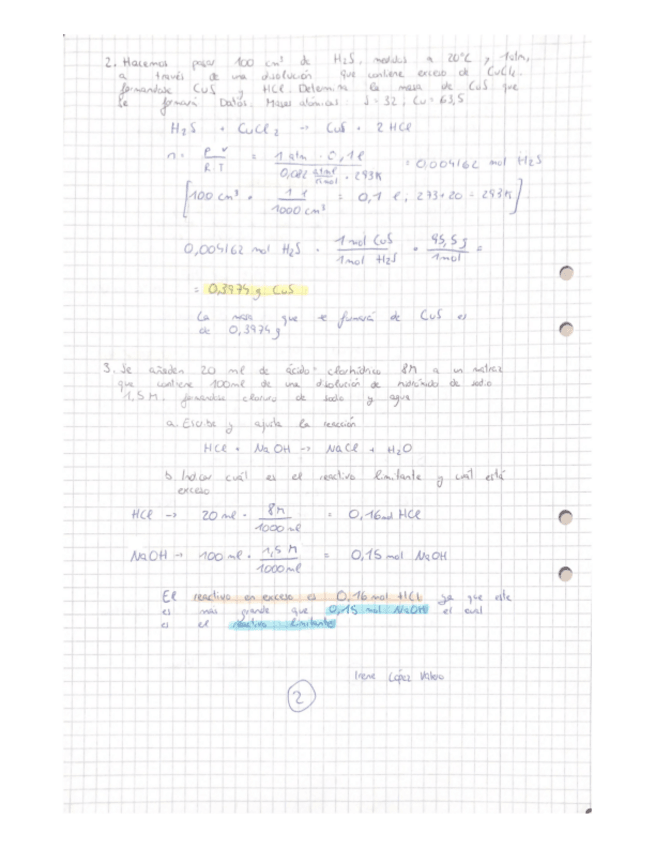 2. Hacemos pasar 100 cm³ de H₂S, medidos a 20°C y 1atm,
a través de una disolución que contiene exceso de CuCl₂,
formandose CuS y HCl. Determina la masa de CuS que
se formará Datos: Masas atómicas S = 32; Cu = 63,5
H₂S + CuCl₂ → CuS + 2 HCl
n = P·V / R·T = 1 atm · 0,1 l / 0,082 atm·l / K·mol · 293K = 0,004162 mol H₂S
[100 cm³ · 1 l / 1000 cm³ = 0,1 l, 273+20 = 293K]
0,004162 mol H₂S · 1 mol CuS / 1 mol H₂S · 95,5 g / 1 mol =
= 0,3974 g CuS
La masa que se formará de CuS es
de 0,3974 g
3. Se añaden 20 ml de ácido clorhídrico 8M a un matraz
que contiene 100ml de una disolución de hidróxido de sodio
1,5 M, formandose cloruro de sodio y agua
a. Escribe y ajusta la reacción
HCl + NaOH → NaCl + H₂O
b. Indicar cuál es el reactivo limitante y cuál está
exceso
HCl → 20 ml · 8M / 1000 ml = 0,16 mol HCl
NaOH → 100 ml · 1,5 M / 1000 ml = 0,15 mol NaOH
El reactivo en exceso es 0,16 mol HCl ya que este
es más grande que 0,15 mol NaOH el cual
es el reactivo limitante
Irene López Valero
2